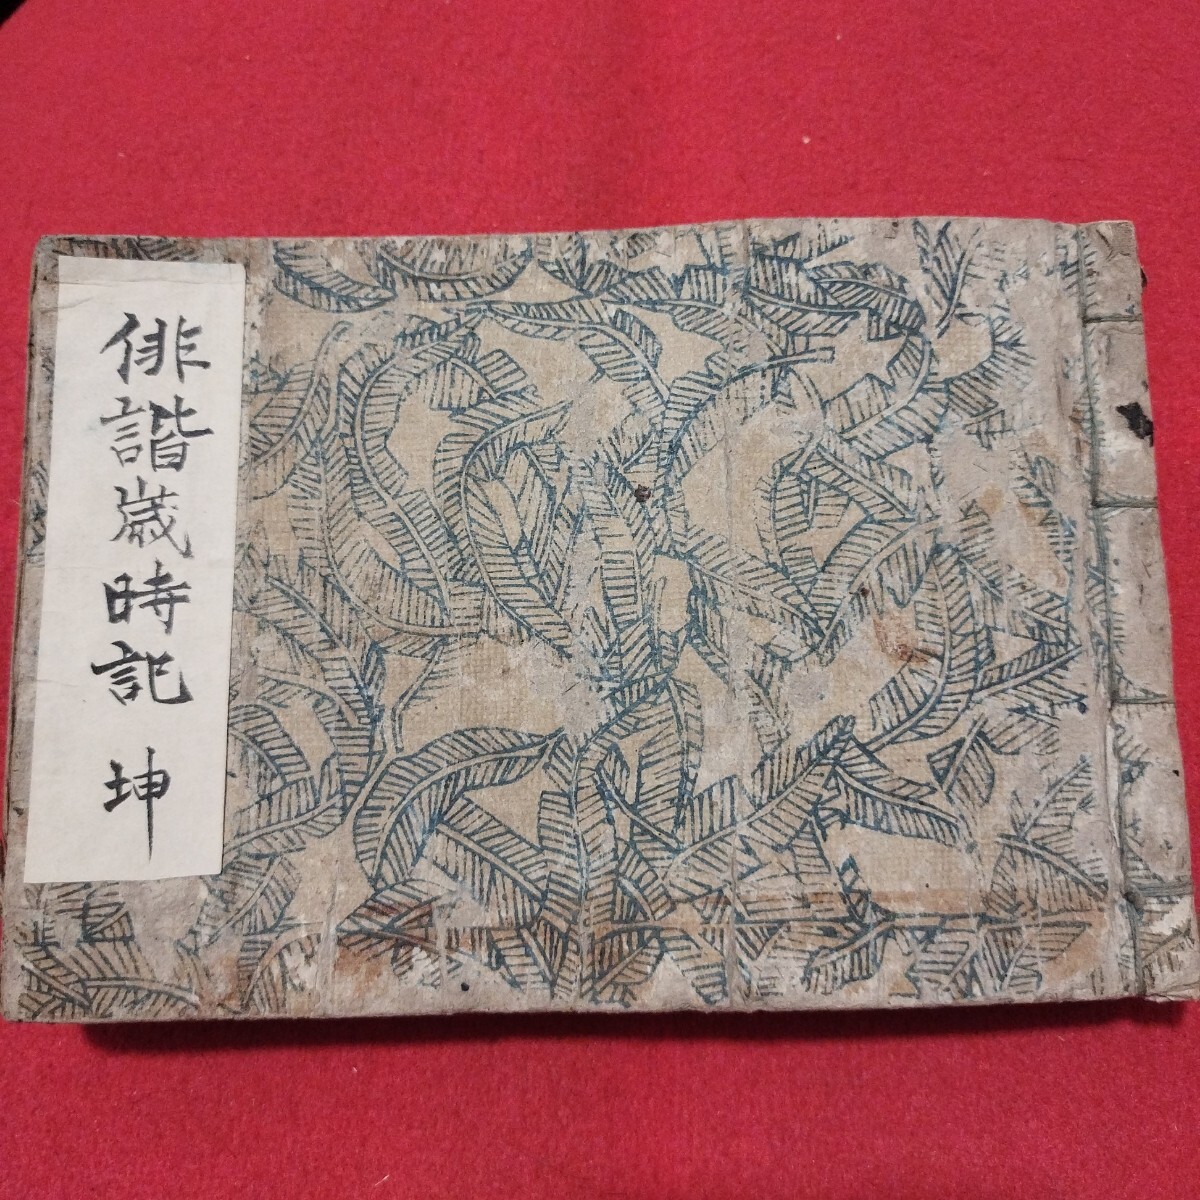 俳諧歳時記 坤